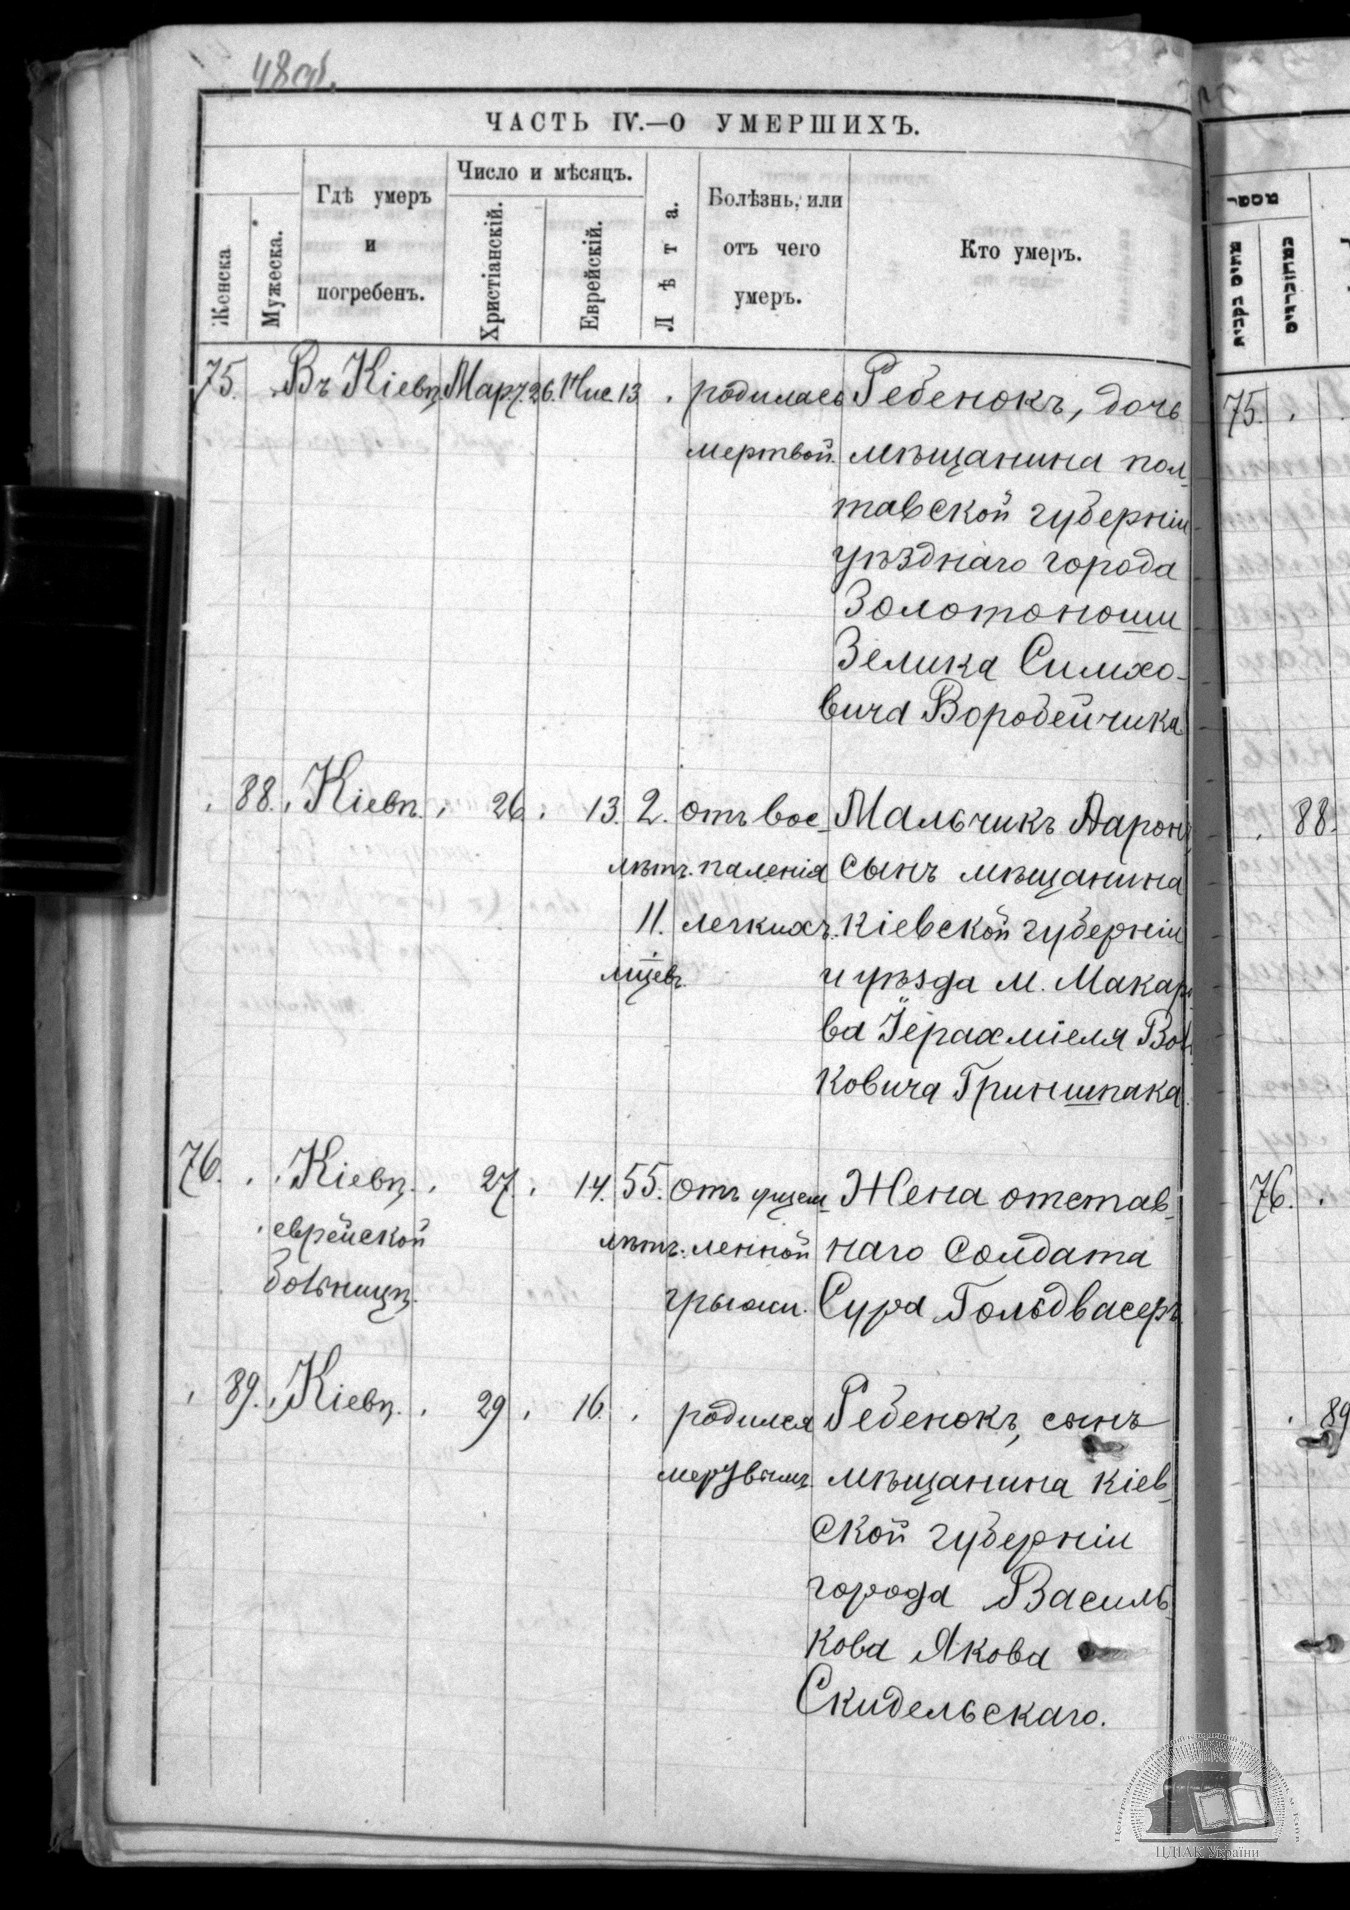 48об.
ЧАСТЬ IV.—О УМЕРШИХЪ.
Женска
Мужеска.
Гдѣ умеръ
и
погребенъ.
Число и мѣсяцъ.
Христіанскій.
Еврейскій.
Лѣта.
Болѣзнь, или
отъ чего
умеръ.
Кто умеръ.
75. Въ Кіевѣ Март. 26. Нис. 13. родилась Ребенокъ, дочь
мертвой. мѣщанина пол-
тавской губерніи
уѣзднаго города
Золотоноши
Зелика Симхо-
вича Воробейчика
88. Кіевѣ. 26. 13. 2. отъ вос- Мальчикъ Аронъ
лѣтъ. паленія сынъ мѣщанина
11. легкихъ. кіевской губерніи
мѣсяцевъ. и уѣзда м. Макаро
ва Іерахміеля Вов-
ковича Гриншпака.
76. Кіевѣ. 27. 14. 55. отъ ущем- Жена отстав-
еврейской лѣтъ. ленной наго солдата
больницѣ. грыжи. Сура Гольдвасеръ
89. Кіевѣ. 29. 16. родился Ребенокъ, сынъ
мертвымъ. мѣщанина кіев-
ской губерніи
города Василь-
кова Якова
Скидельскаго.
75.
88.
76.
89
ЦДІАК України